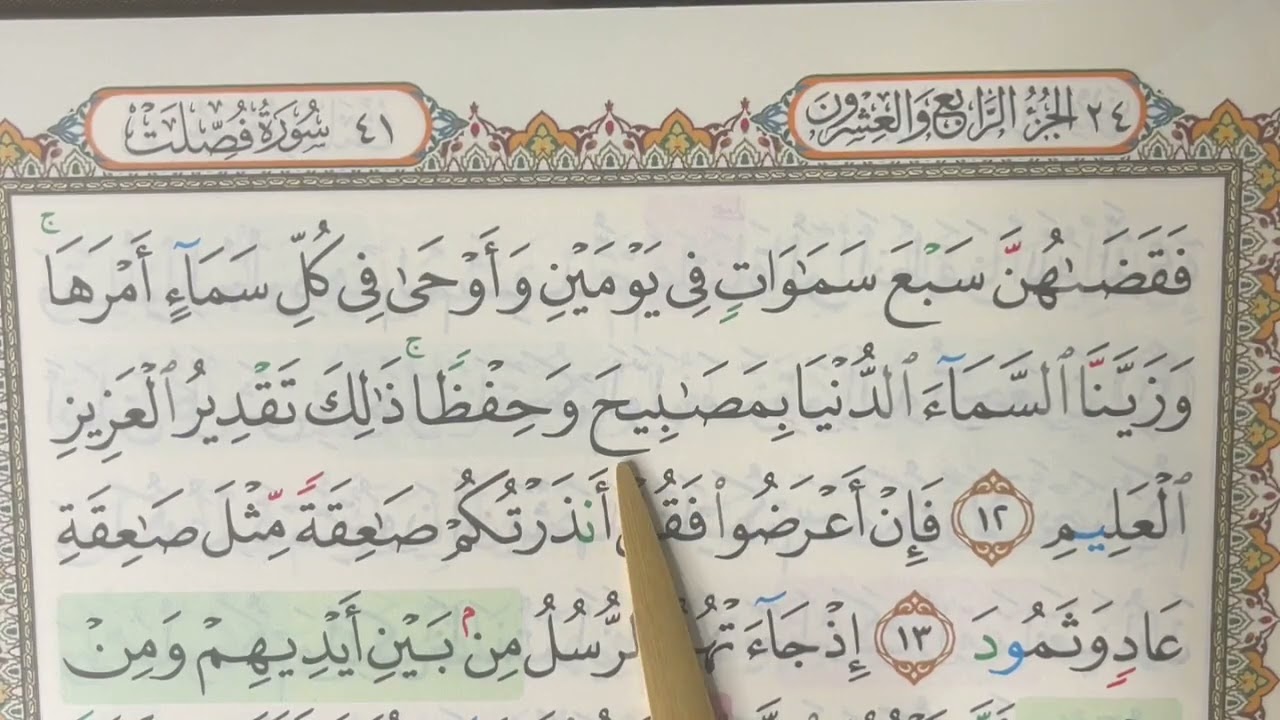 ٢٤ الجُزْءُ الرَّابِعُ وَالعِشْرُونَ
٤١ سُورَةُ فُصِّلَتْ
فَقَضَىٰهُنَّ سَبْعَ سَمَٰوَاتٍ فِى يَوْمَيْنِ وَأَوْحَىٰ فِى كُلِّ سَمَآءٍ أَمْرَهَا ۚ
وَزَيَّنَّا ٱلسَّمَآءَ ٱلدُّنْيَا بِمَصَٰبِيحَ وَحِفْظًا ۚ ذَٰلِكَ تَقْدِيرُ ٱلْعَزِيزِ
ٱلْعَلِيمِ ١٢ فَإِنْ أَعْرَضُوا۟ أَنذَرْتُكُمْ صَٰعِقَةً مِّثْلَ صَٰعِقَةِ
عَادٍ وَثَمُودَ ١٣ إِذْ مِنۢ بَيْنِ أَيْدِيهِمْ وَمِنْ